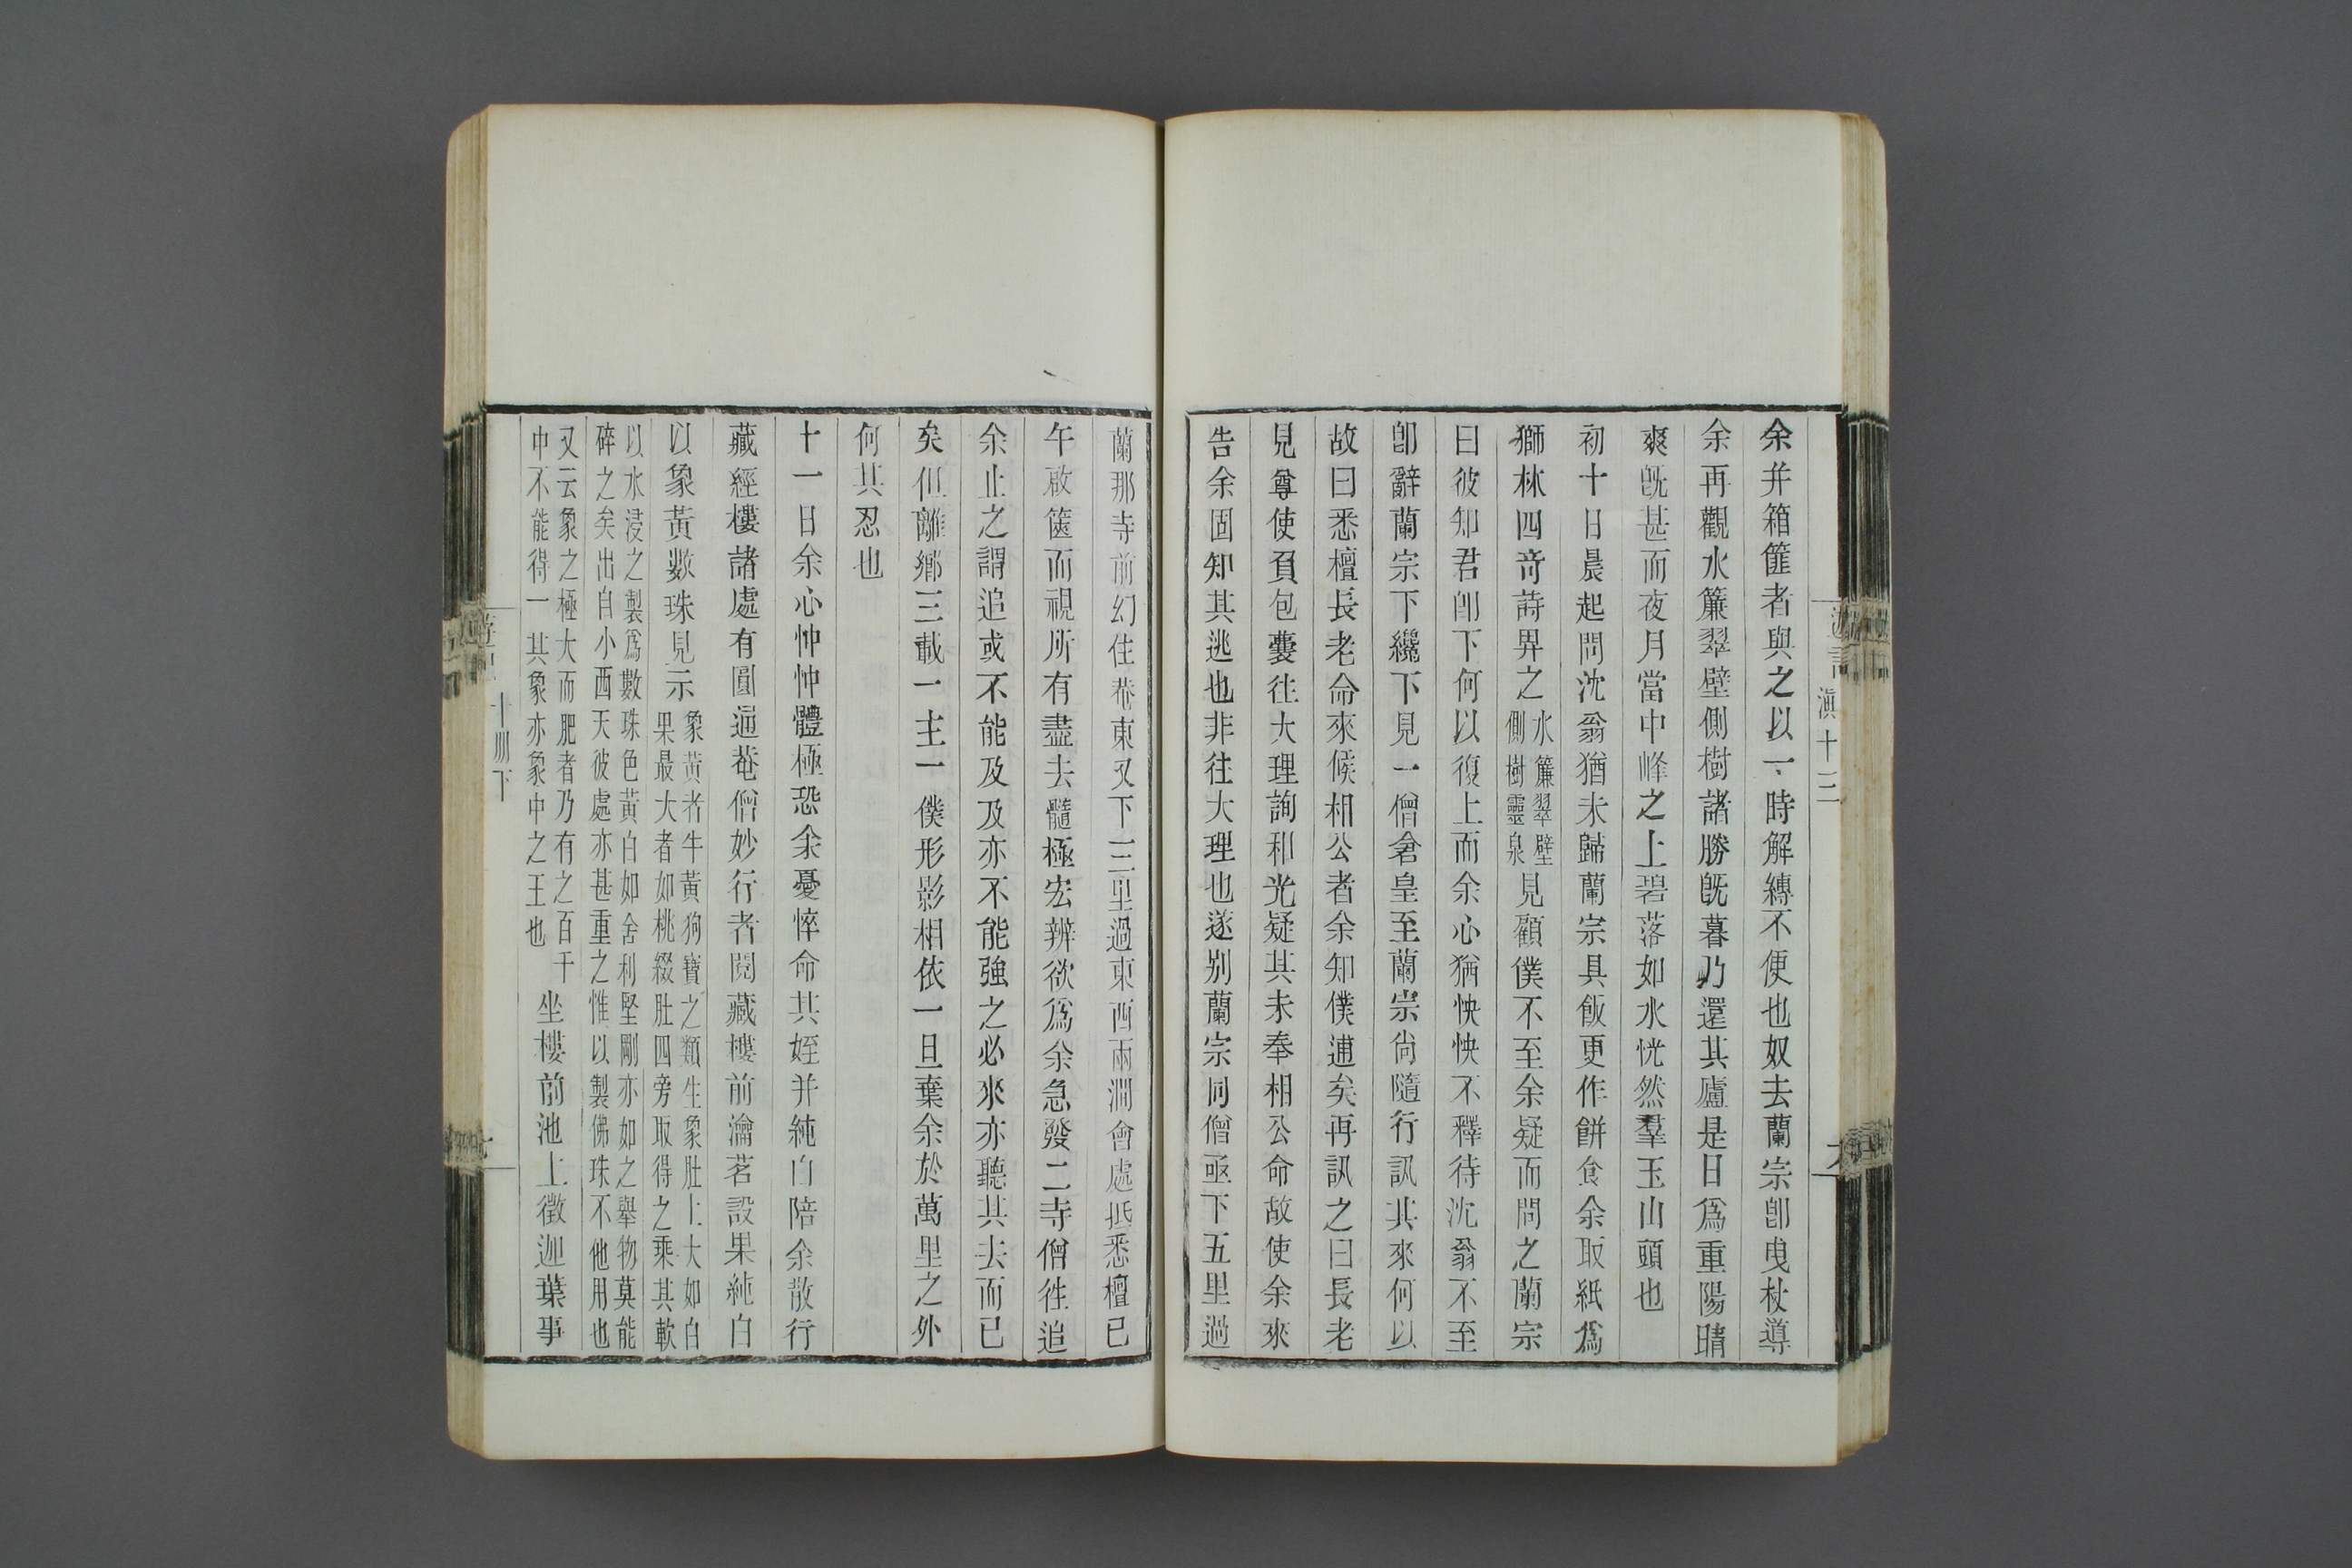 余并箱篚者與之以一時解縛不便也奴去蘭宗卽曳杖導
余再觀水簾翠壁側樹諸勝旣暮乃還其廬是日爲重陽晴
爽旣甚而夜月當中峰之上碧落如水恍然羣玉山頭也
初十日晨起問沈翁猶未歸蘭宗具飯更作餅食余取紙爲
獅林四奇詩畀之水簾翠壁側樹靈泉見顧僕不至余疑而問之蘭宗
曰彼知君卽下何以復上而余心猶怏怏不釋待沈翁不至
卽辭蘭宗下纔下見一僧倉皇至蘭宗尙隨行訊其來何以
故曰悉檀長老命來候相公者余知僕逋矣再訊之曰長老
見尊使負包橐往大理詢和光疑其未奉相公命故使余來
告余固知其逃也非往大理也遂別蘭宗同僧亟下五里過
蘭那寺前幻住菴東又下三里過東西兩澗會處抵悉檀已
午啟篋而視所有盡去髓極宏辨欲爲余急發二寺僧往追
余止之謂追或不能及及亦不能強之必來亦聽其去而已
矣但離鄉三載一主一僕形影相依一旦棄余於萬里之外
何其忍也
十一日余心忡忡體極恐余憂悴命其姪并純白陪余散行
藏經樓諸處有圓通菴僧妙行者閱藏樓前瀹茗設果純白
以象黃數珠見示象黃者牛黃狗寶之類生象肚上大如白
果最大者如桃綴肚四旁取得之乘其軟
以水浸之製爲數珠色黃白如舍利堅剛亦如之舉物莫能
碎之矣出自小西天彼處亦甚重之惟以製佛珠不他用也
又云象之極大而肥者乃有之百千
中不能得一其象亦象中之王也坐樓前池上徵迦葉事
遊記
滇十三
遊記
十册下